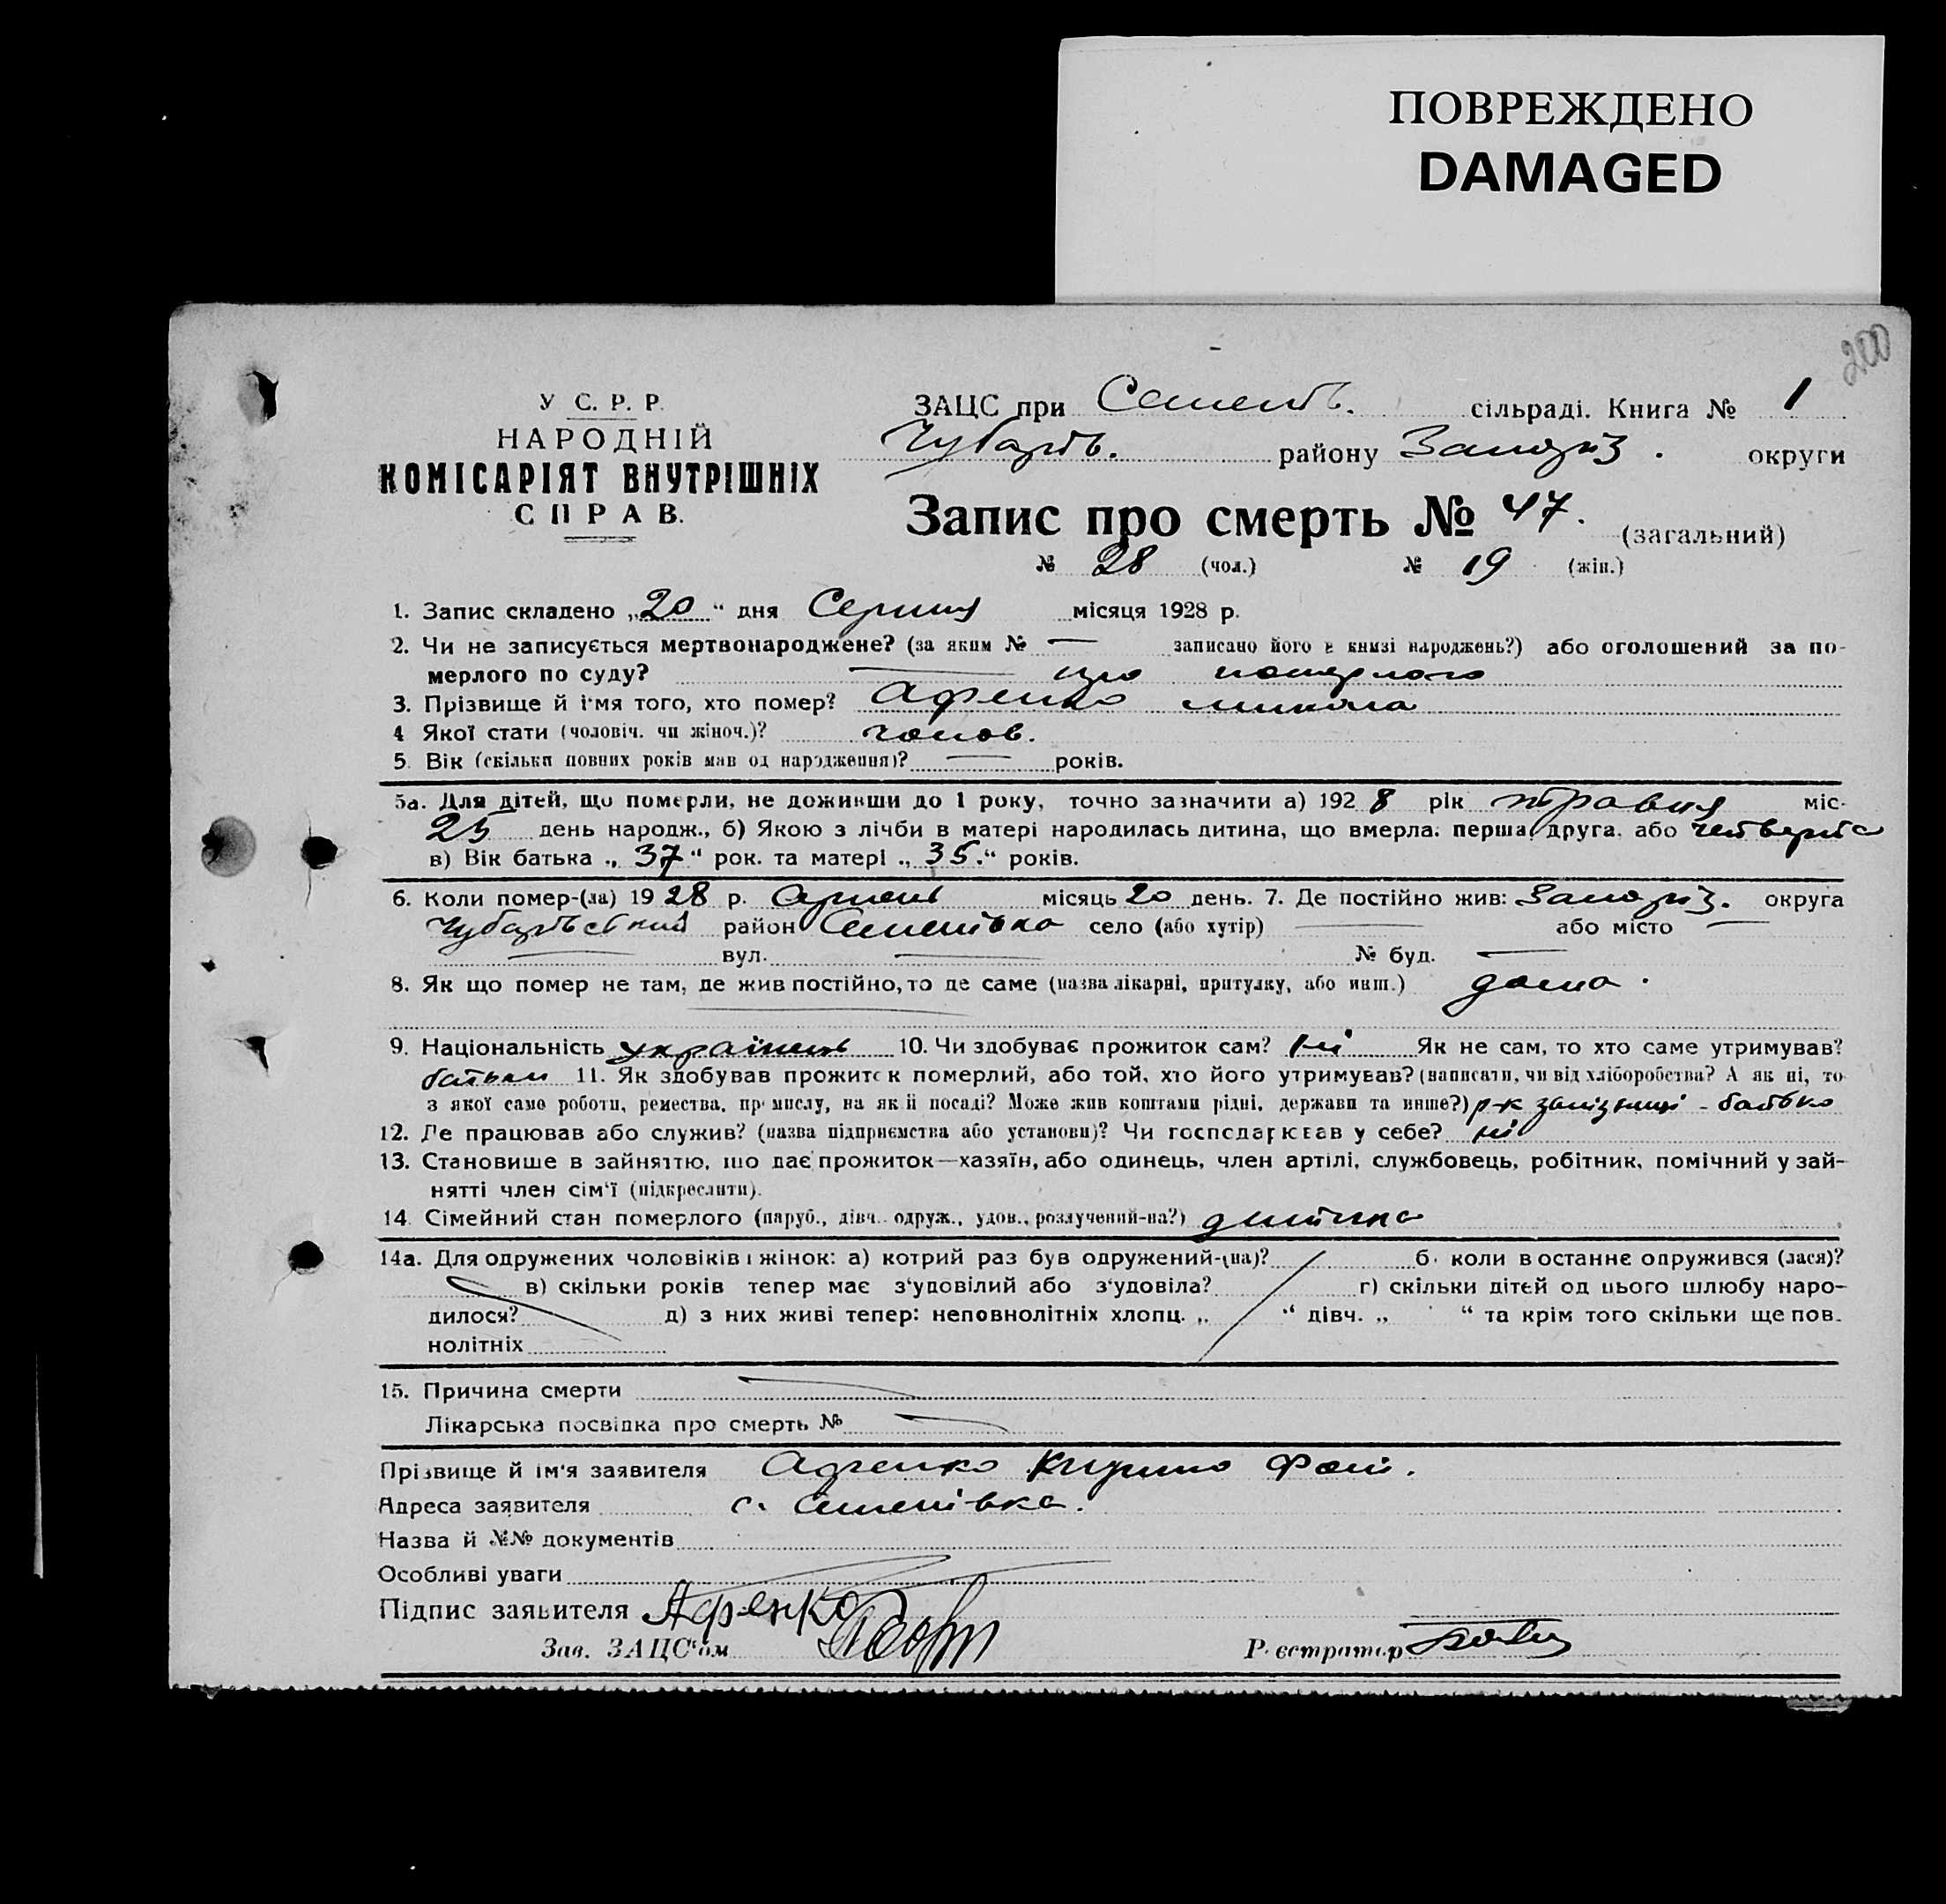 ПОВРЕЖДЕНО
DAMAGED
200
У С. Р. Р.
НАРОДНІЙ
КОМІСАРІЯТ ВНУТРІШНІХ
СПРАВ.
ЗАЦС при Семенів. сільраді. Книга № 1
Чубарів. району Запоріз. округи
Запис про смерть № 47. (загальний)
№ 28 (чол.) № 19 (жін.)
1. Запис складено „20“ дня Серпня місяця 1928 р.
2. Чи не записується мертвонароджене? (за яким № — записано його в книзі народжень?) або оголошений за по-
мерлого по суду? — про померлого
3. Прізвище й ім'я того, хто помер? Афенко Микола
4 Якої стати (чоловіч. чи жіноч.)? чолов.
5. Вік (скільки повних років мав од народження)? — років.
5а. Для дітей, що померли, не доживши до 1 року, точно зазначити а) 1928 рік травня міс.
25 день народж., б) Якою з лічби в матері народилась дитина, що вмерла: перша, друга, або четверта
в) Вік батька „37“ рок. та матері „35.“ років.
6. Коли помер-(ла) 1928 р. Серпень місяць 20 день. 7. Де постійно жив: Запоріз. округа
Чубарівський район Семенівка село (або хутір) — або місто —
— вул. — № буд. —
8. Як що помер не там, де жив постійно, то де саме (назва лікарні, притулку, або инш.) дома.
9. Національність українець 10. Чи здобуває прожиток сам? Ні Як не сам, то хто саме утримував?
батьки 11. Як здобував прожиток померлий, або той, хто його утримував? (написати, чи від хліборобства? А як ні, то
з якої саме роботи, ремества, промислу, на якій посаді? Може жив коштами рідні, держави та инше?) р-к залізниці - батько
12. Де працював або служив? (назва підприємства або установи)? Чи господарював у себе? ні
13. Становище в зайняттю, що дає прожиток—хазяїн, або одинець, член артілі, службовець, робітник, помічний у зай-
нятті член сім'ї (підкреслити).
14. Сімейний стан померлого (паруб., дівч. одруж., удов., розлучений-на?) дитина
14а. Для одружених чоловіків і жінок: а) котрий раз був одружений-(на)? б. коли востаннє одружився (лася)?
в) скільки років тепер має з'удовілий або з'удовіла? г) скільки дітей од цього шлюбу наро-
дилося? д) з них живі тепер: неповнолітніх хлопц. „ “ дівч. „ “ та крім того скільки ще пов.
нолітніх
15. Причина смерти —
Лікарська посвідка про смерть № —
Прізвище й ім'я заявителя Афенко Кирило
Адреса заявителя с. Семенівка.
Назва й №№ документів
Особливі уваги
Підпис заявителя Афенко
Зав. ЗАЦС'ом Реєстратор